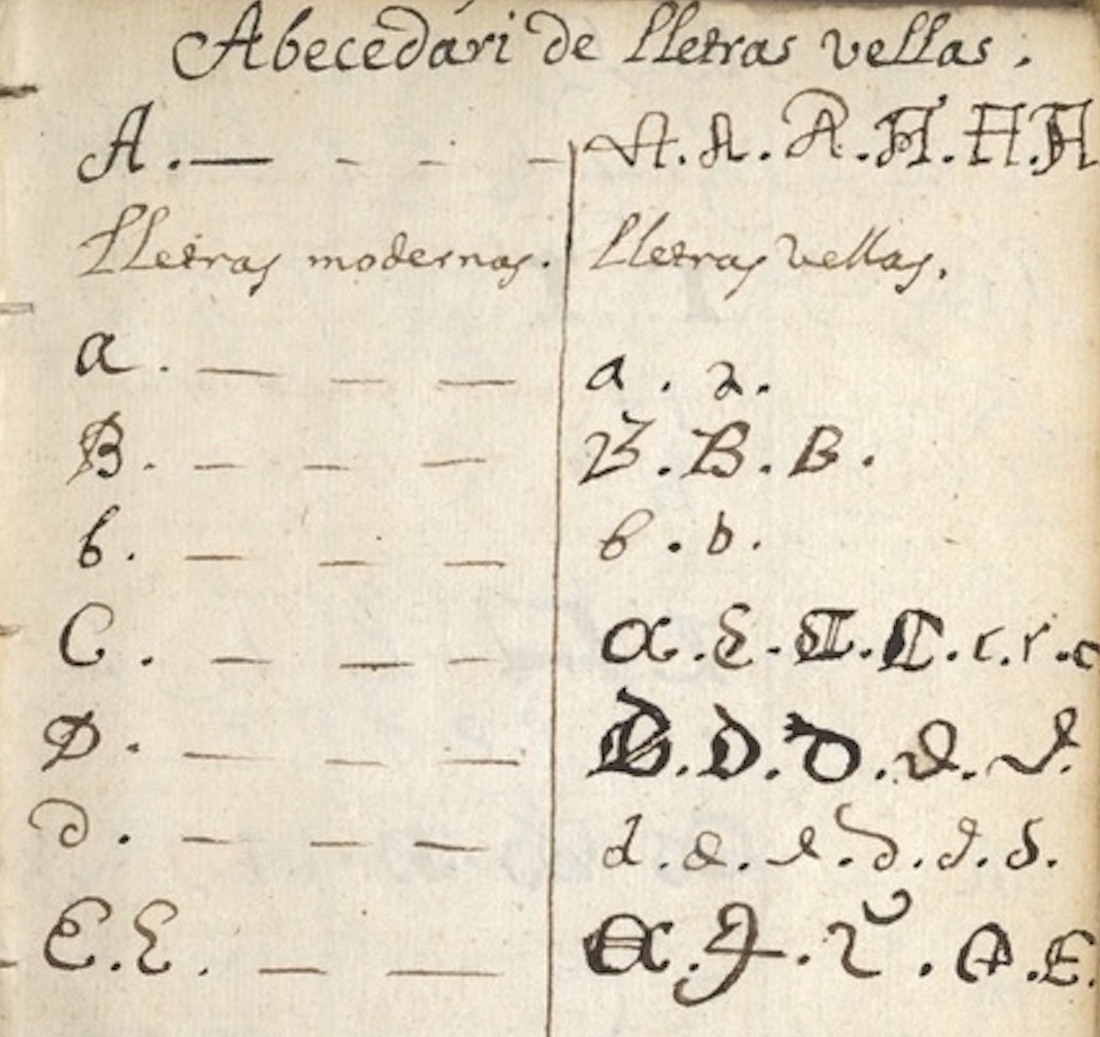 Abecedári de lletras vellas.
A. — - - - A. A. A. A. A. A
Lletras modernas. Lletras vellas.
a. — — — a. a.
B. — — — B. B. B.
b. — — — b. b.
C. — — — C. C. C. C. c. c. c
D. — — — D. D. D. D. D.
d. — — — d. d. d. d. d. d.
E. E. — — E. E. E. E. E.